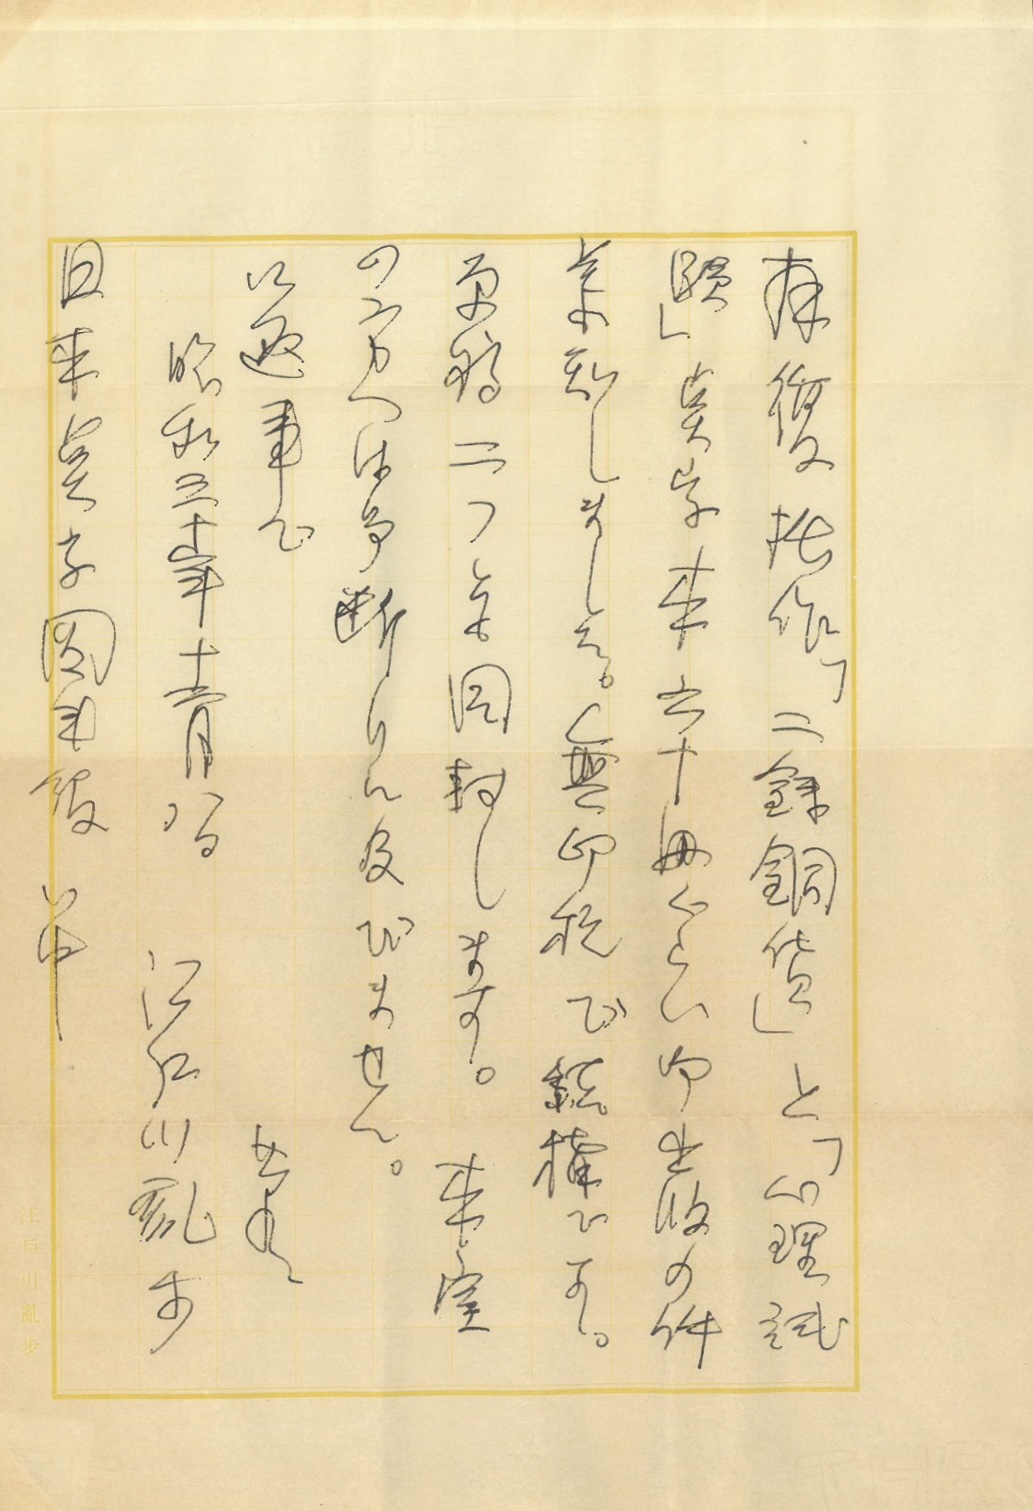 拝復 拙作「二銭銅貨」と「心理試
験」点字本六十册くらい御出版の件
承知しました。無印税で結構です。
原稿二つ共同封します。本室
の方へは御断りに及びません。
御返事まで
草々
昭和三十年十一月八日 江戸川乱歩
日本点字図書館 御中
江戸川亂歩